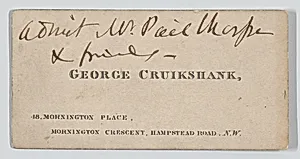 Admit Mr. Paul Thorpe
& friends
GEORGE CRUIKSHANK,
48. MORNINGTON PLACE,
MORNINGTON CRESCENT, HAMPSTEAD ROAD, N.W.